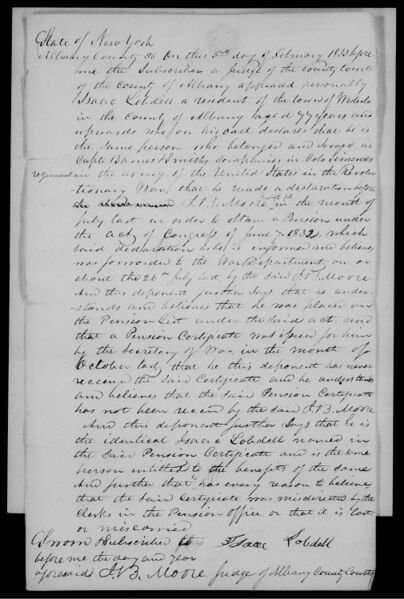 State of New York
Albany County SS On this 5th day of February 1833 before
me the Subscriber a Judge of the County Courts
of the County of Albany appeared personally
Isaac Lobdell a resident of the town of Westerlo
in the County of Albany aged 77 years and
upwards who on his oath declares that he is
the same person who belonged and served in
Capts Barnes & Smiths companies in Cols Simonds
regiment in the army of the United States in the Revolu-
tionary War, that he made a declaration before
J.B. Moore in the month of
July last in order to obtain a Pension under
the act of Congress of June 7, 1832, which
said declaration as he is informed and believes
was forwarded to the War Department, on or
about the 26th July last, by the said J.B. Moore
And this deponent further says that he under-
stands and believes that he was placed on
the Pension List under the said act and
that a Pension Certificate was issued for him
by the Secretary of War in the month of
October last, that he this deponent has never
received the said Certificate and he understands
and believes that the said Pension Certificate
has not been received by the said J.B. Moore
And this deponent further says that he is
the identical Isaac Lobdell named in
the said Pension Certificate and is the same
person entitled to the benefits of the same
And further that he has every reason to believe
that the said Certificate was misdirected by the
Clerks in the Pension Office or that it is lost
or miscarried
Sworn & Subscribed to Isaac Lobdell
before me the day and year
aforesaid J.B. Moore Judge of Albany County Courts